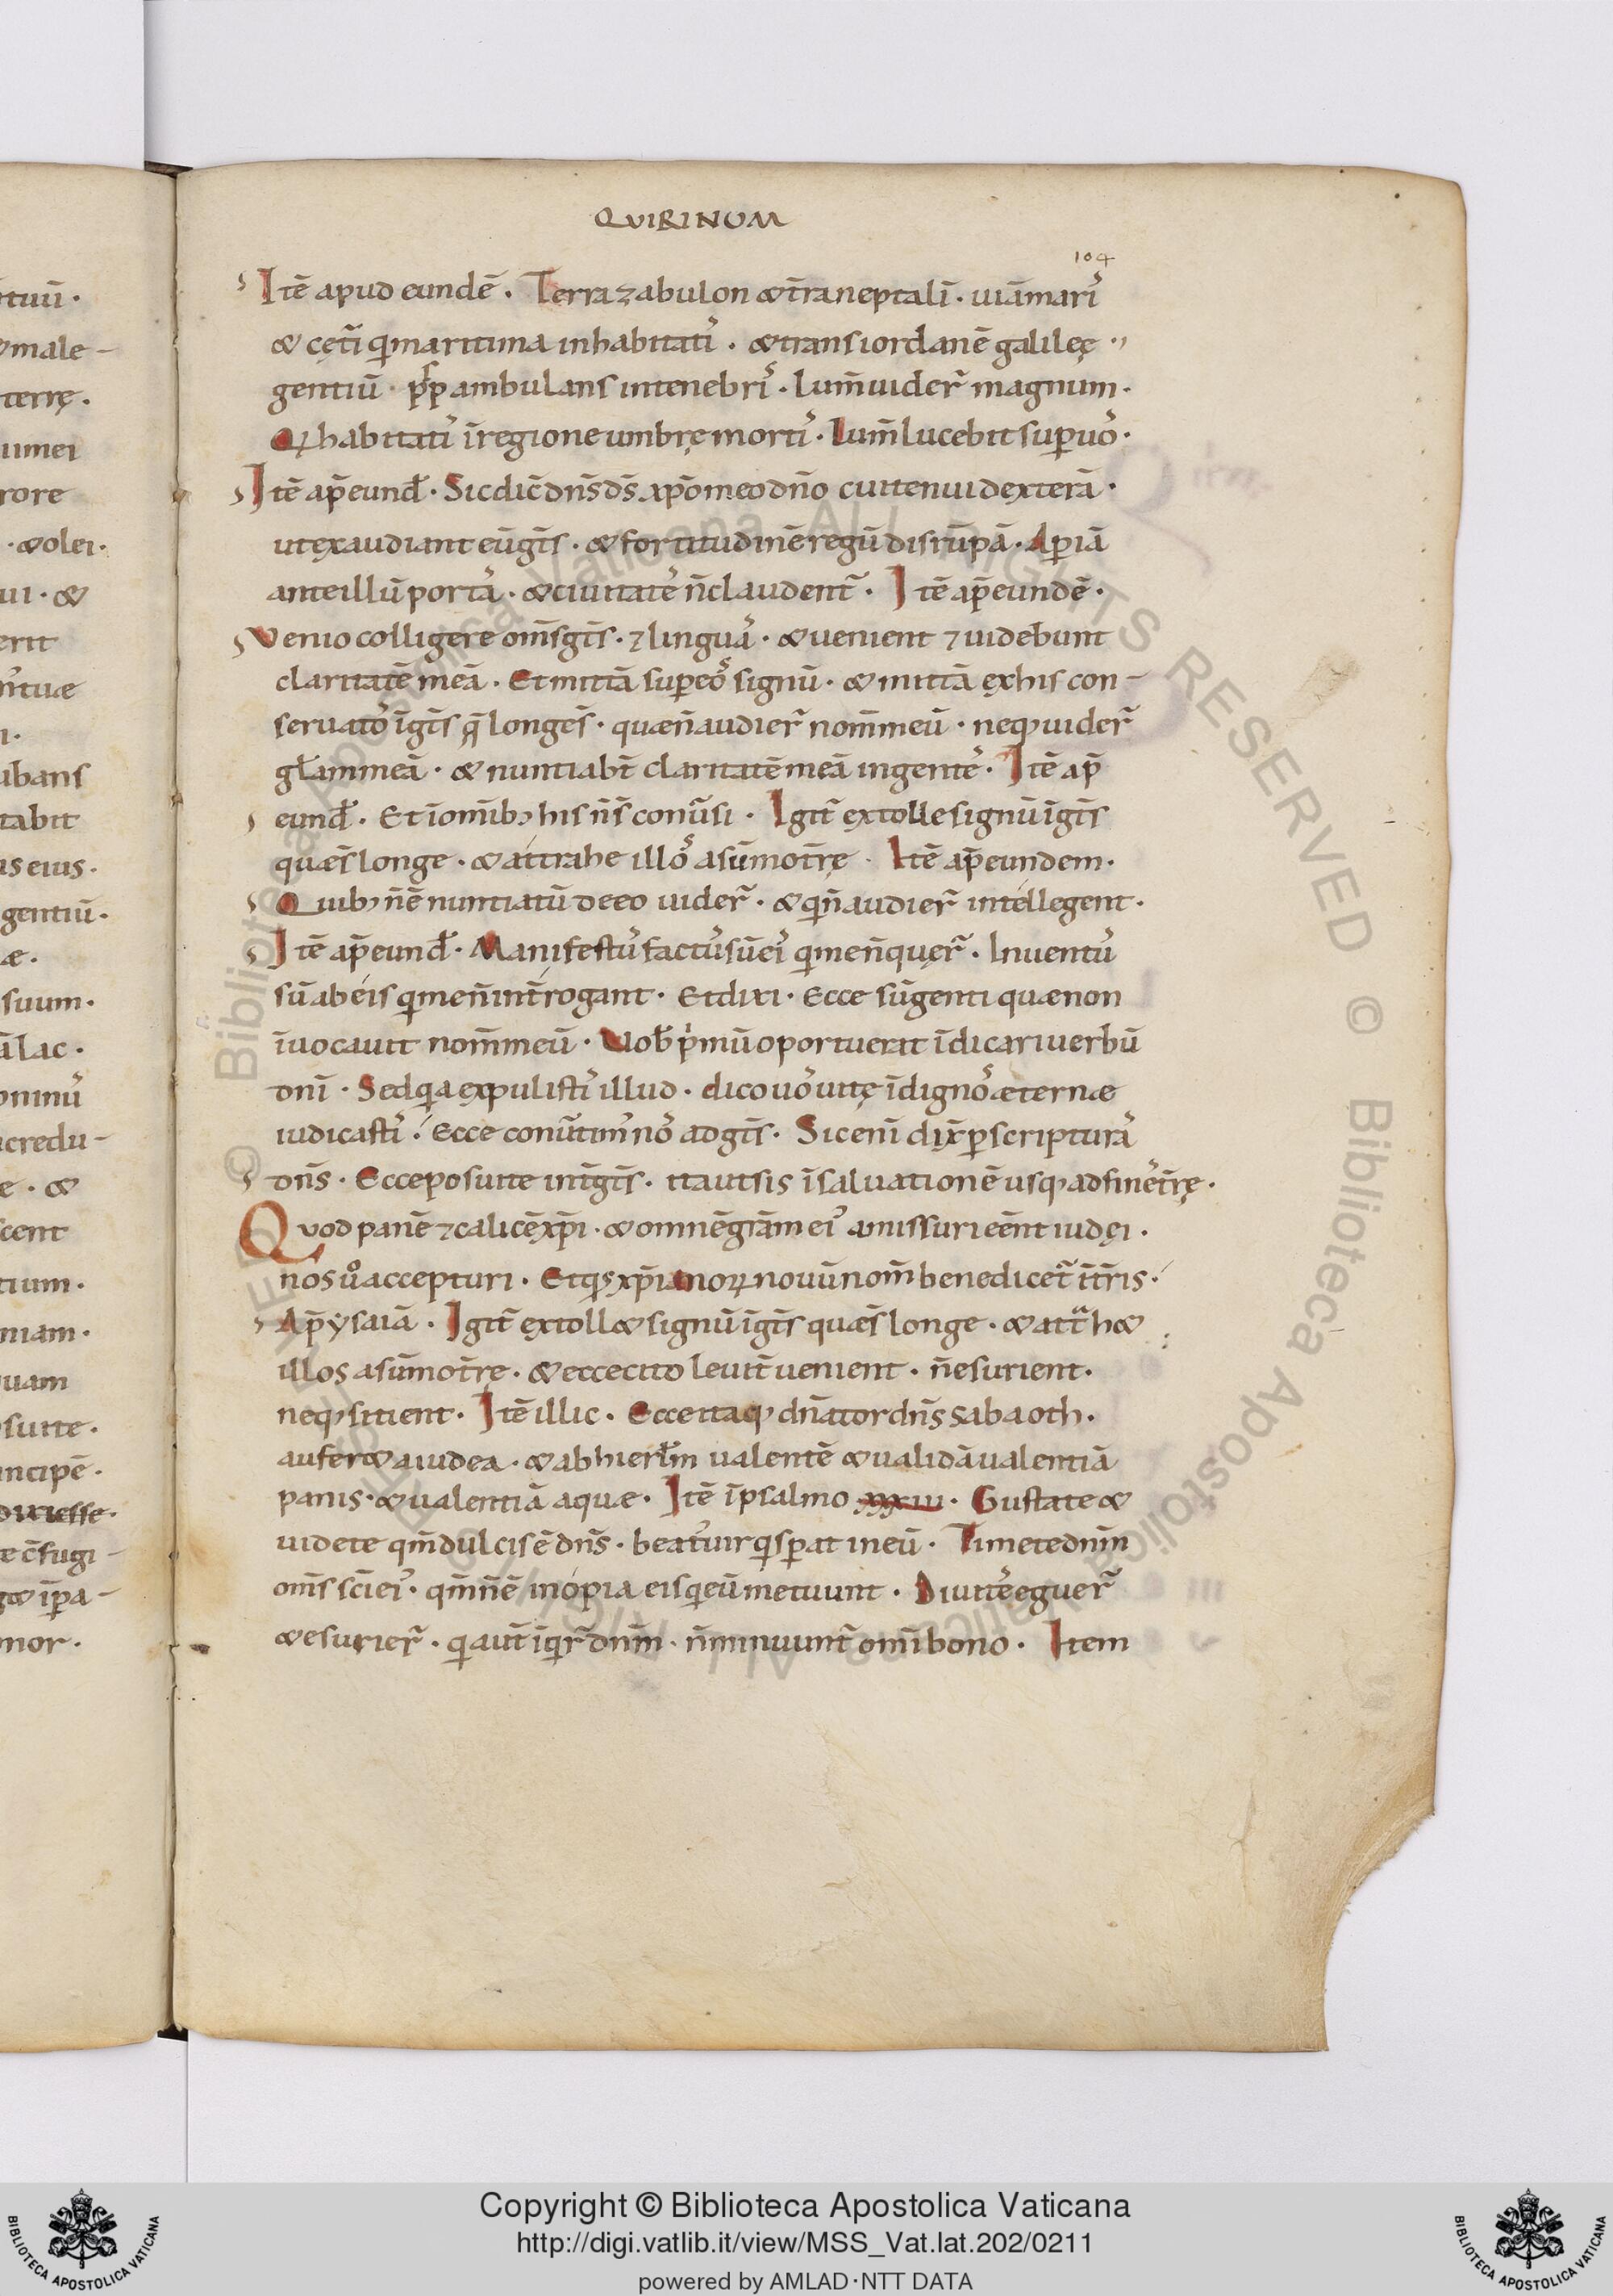 QVIRINUM
104
Itē apud eundē. Terra zabulon & t̄ra neptalī. uiā mari᷒
& cęt̄i qi maritima inhabitati᷒. & trans iordanē galileę
gentiū. ppl's ambulans in tenebri᷒. lum̄ uider̄ magnum.
Qꝛ habitati᷒ ī regione umbrę morti᷒. lum̄ lucebit sup uo᷒.
Itē ap̄ eund̄. Sic dic̄ dn̄s d̄s xp̄o meo dn̄o cui tenui dexterā.
ut exaudiant eū gt̄s. & fortitudinē regū disrūpā. Apiā
ante illū porta᷒. & ciuitate᷒ n̄ claudent̄. Itē ap̄ eundē.
Venio colligere om̄s gt̄s. ⁊ lingua᷒. & uenient ⁊ uidebunt
claritatē meā. Et mittā sup eo᷒ signū. & mittā ex his con-
seruato᷒ ī gt̄s q̄ longe s̄. quæ n̄ audier̄ nom̄ meū. neq; uider̄
gl̄am meā. & nuntiabt̄ claritatē meā in gente᷒. Itē ap̄
eund̄. Et ī om̄ib; his n̄ s̄ conu̅si. Igit̄ extolle signū ī gt̄s
quæ s̄ longe. & attrahe illo᷒ a sūmo t̄rę. Itē ap̄ eundem.
Quib; n̄ ē nuntiatū de eo uider̄. & qi n̄ audier̄ intellegent.
Itē ap̄ eund̄. Manifestu᷒ factu᷒ sū ei᷒ qi me n̄ quęr̄. Inuentu᷒
sū ab eis qi me n̄ int̄rogant. Et dixi. Ecce sū genti quæ non
īuocauit nom̄ meū. Uob̄ pimū oportuerat īdicari uerbū
dn̄i. Sed qia expulisti᷒ illud. dico uo᷒ uitę īdigno᷒ æternæ
iudicasti᷒. Ecce conu̅timu᷒ no᷒ ad gt̄s. Sic enī dix̄ p scriptura᷒
dn̄s. Ecce posui te int̄ gt̄s. ita ut sis ī saluationē usq; ad fine᷒ t̄rę.
Quod panē ⁊ calicē xp̄i. & omnē gr̄am ei᷒ amissuri eēnt iudęi.
nos u̅o accepturi. Et qi s xp̄ianoꝝ nouū nom̄ benedicet̄ ī t̄ris.
Ap̄ ysaiā. Igit̄ extoll& signū ī gt̄s quæ s̄ longe. & att̄h&
illos a sūmo t̄rę. & ecce cito leuit̄ uenient. n̄ esurient.
neq; sitient. Itē illic. Ecce itaq; dn̄ator dn̄s sabaoth.
aufer& a iudea. & ab hierl̄m ualentē & ualidā ualentiā
panis. & ualentiā aquæ. Itē ī psalmo xxxiii. Gustate &
uidete qm̄ dulcis ē dn̄s. beatu᷒ uir qi spat in eū. Timete dnm̄
om̄s sc̄i ei᷒. qm̄ n̄ ē inopia eis qi eū metuunt. Diuite᷒ eguer̄
& esurier̄. qi aut̄ īqir̄ dnm̄. n̄ minuunt̄ om̄i bono. Item
tuū.
& male-
terrę.
rore
. & olei.
ui. &
erit
tuæ
ubans
tabit
us eius.
gentiū.
æ.
suum.
lac.
credu-
e. &
cent
tium.
niam.
uam
suite.
incipē.
e c̄fugi-
mor.
Copyright © Biblioteca Apostolica Vaticana
http://digi.vatlib.it/view/MSS_Vat.lat.202/0211
powered by AMLAD·NTT DATA
BIBLIOTECA APOSTOLICA VATICANA
BIBLIOTECA APOSTOLICA VATICANA